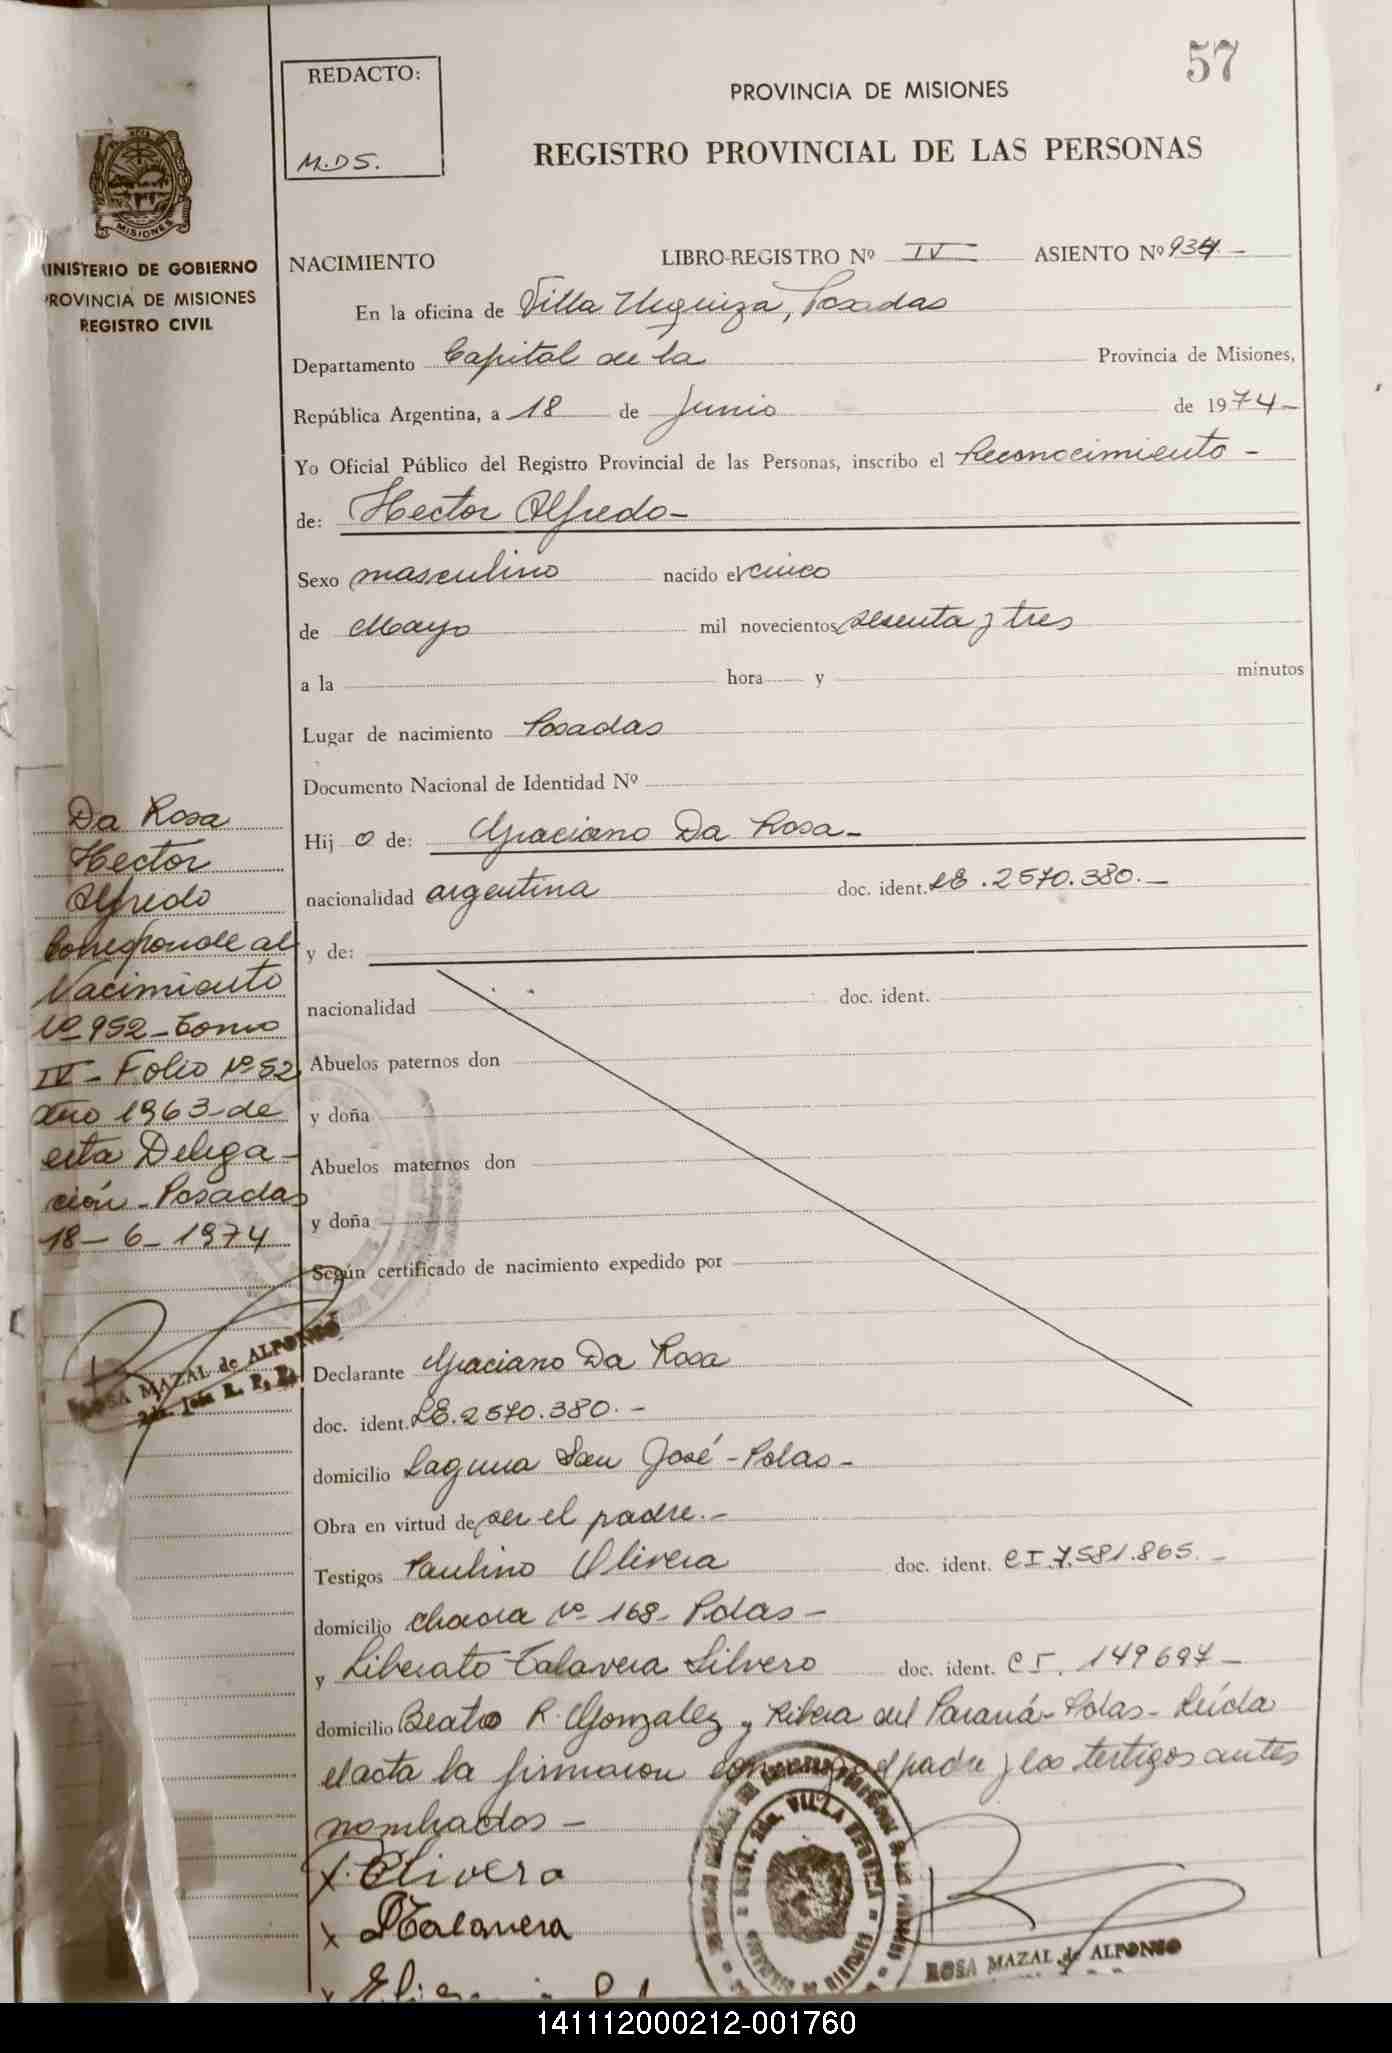 57
REDACTO:
M.D S.
PROVINCIA DE MISIONES
REGISTRO PROVINCIAL DE LAS PERSONAS
MISIONES
MINISTERIO DE GOBIERNO
PROVINCIA DE MISIONES
REGISTRO CIVIL
NACIMIENTO LIBRO-REGISTRO Nº IV ASIENTO Nº 934.-
En la oficina de Villa Urquiza, Posadas
Departamento Capital de la Provincia de Misiones,
República Argentina, a 18 de Junio de 1974-
Yo Oficial Público del Registro Provincial de las Personas, inscribo el Reconocimiento -
de: Hector Alfredo-
Sexo masculino nacido el cinco
de Mayo mil novecientos sesenta y tres
a la hora y minutos
Lugar de nacimiento Posadas
Documento Nacional de Identidad Nº
Hij o de: Graciano Da Rosa-
nacionalidad argentina doc. ident. LE.2570.380.-
y de:
nacionalidad doc. ident.
Abuelos paternos don
y doña
Abuelos maternos don
y doña
Según certificado de nacimiento expedido por
Declarante Graciano Da Rosa
doc. ident. LE.2570.380.-
domicilio Laguna San José-Pdas-
Obra en virtud de ser el padre.-
Testigos Paulino Olivera doc. ident. CI.7.581.865.-
domicilio Chacra Nº 168- Pdas-
y Liberato Talavera Silvero doc. ident. CI. 149697-
domicilio Beato R. Gonzalez y Ribera del Paraná-Pdas- Leída
el acta la firmaron conmigo el padre y los testigos antes
nombrados-
X P. Olivera
X Talavera
X
ROSA MAZAL de ALFONSO
Da Rosa
Hector
Alfredo
Corresponde al
Nacimiento
Nº 952-Tomo
IV- Folio Nº 52
Año 1963-de
esta Delega-
ción-Posadas
18-6-1974
ROSA MAZAL de ALFONSO
141112000212-001760